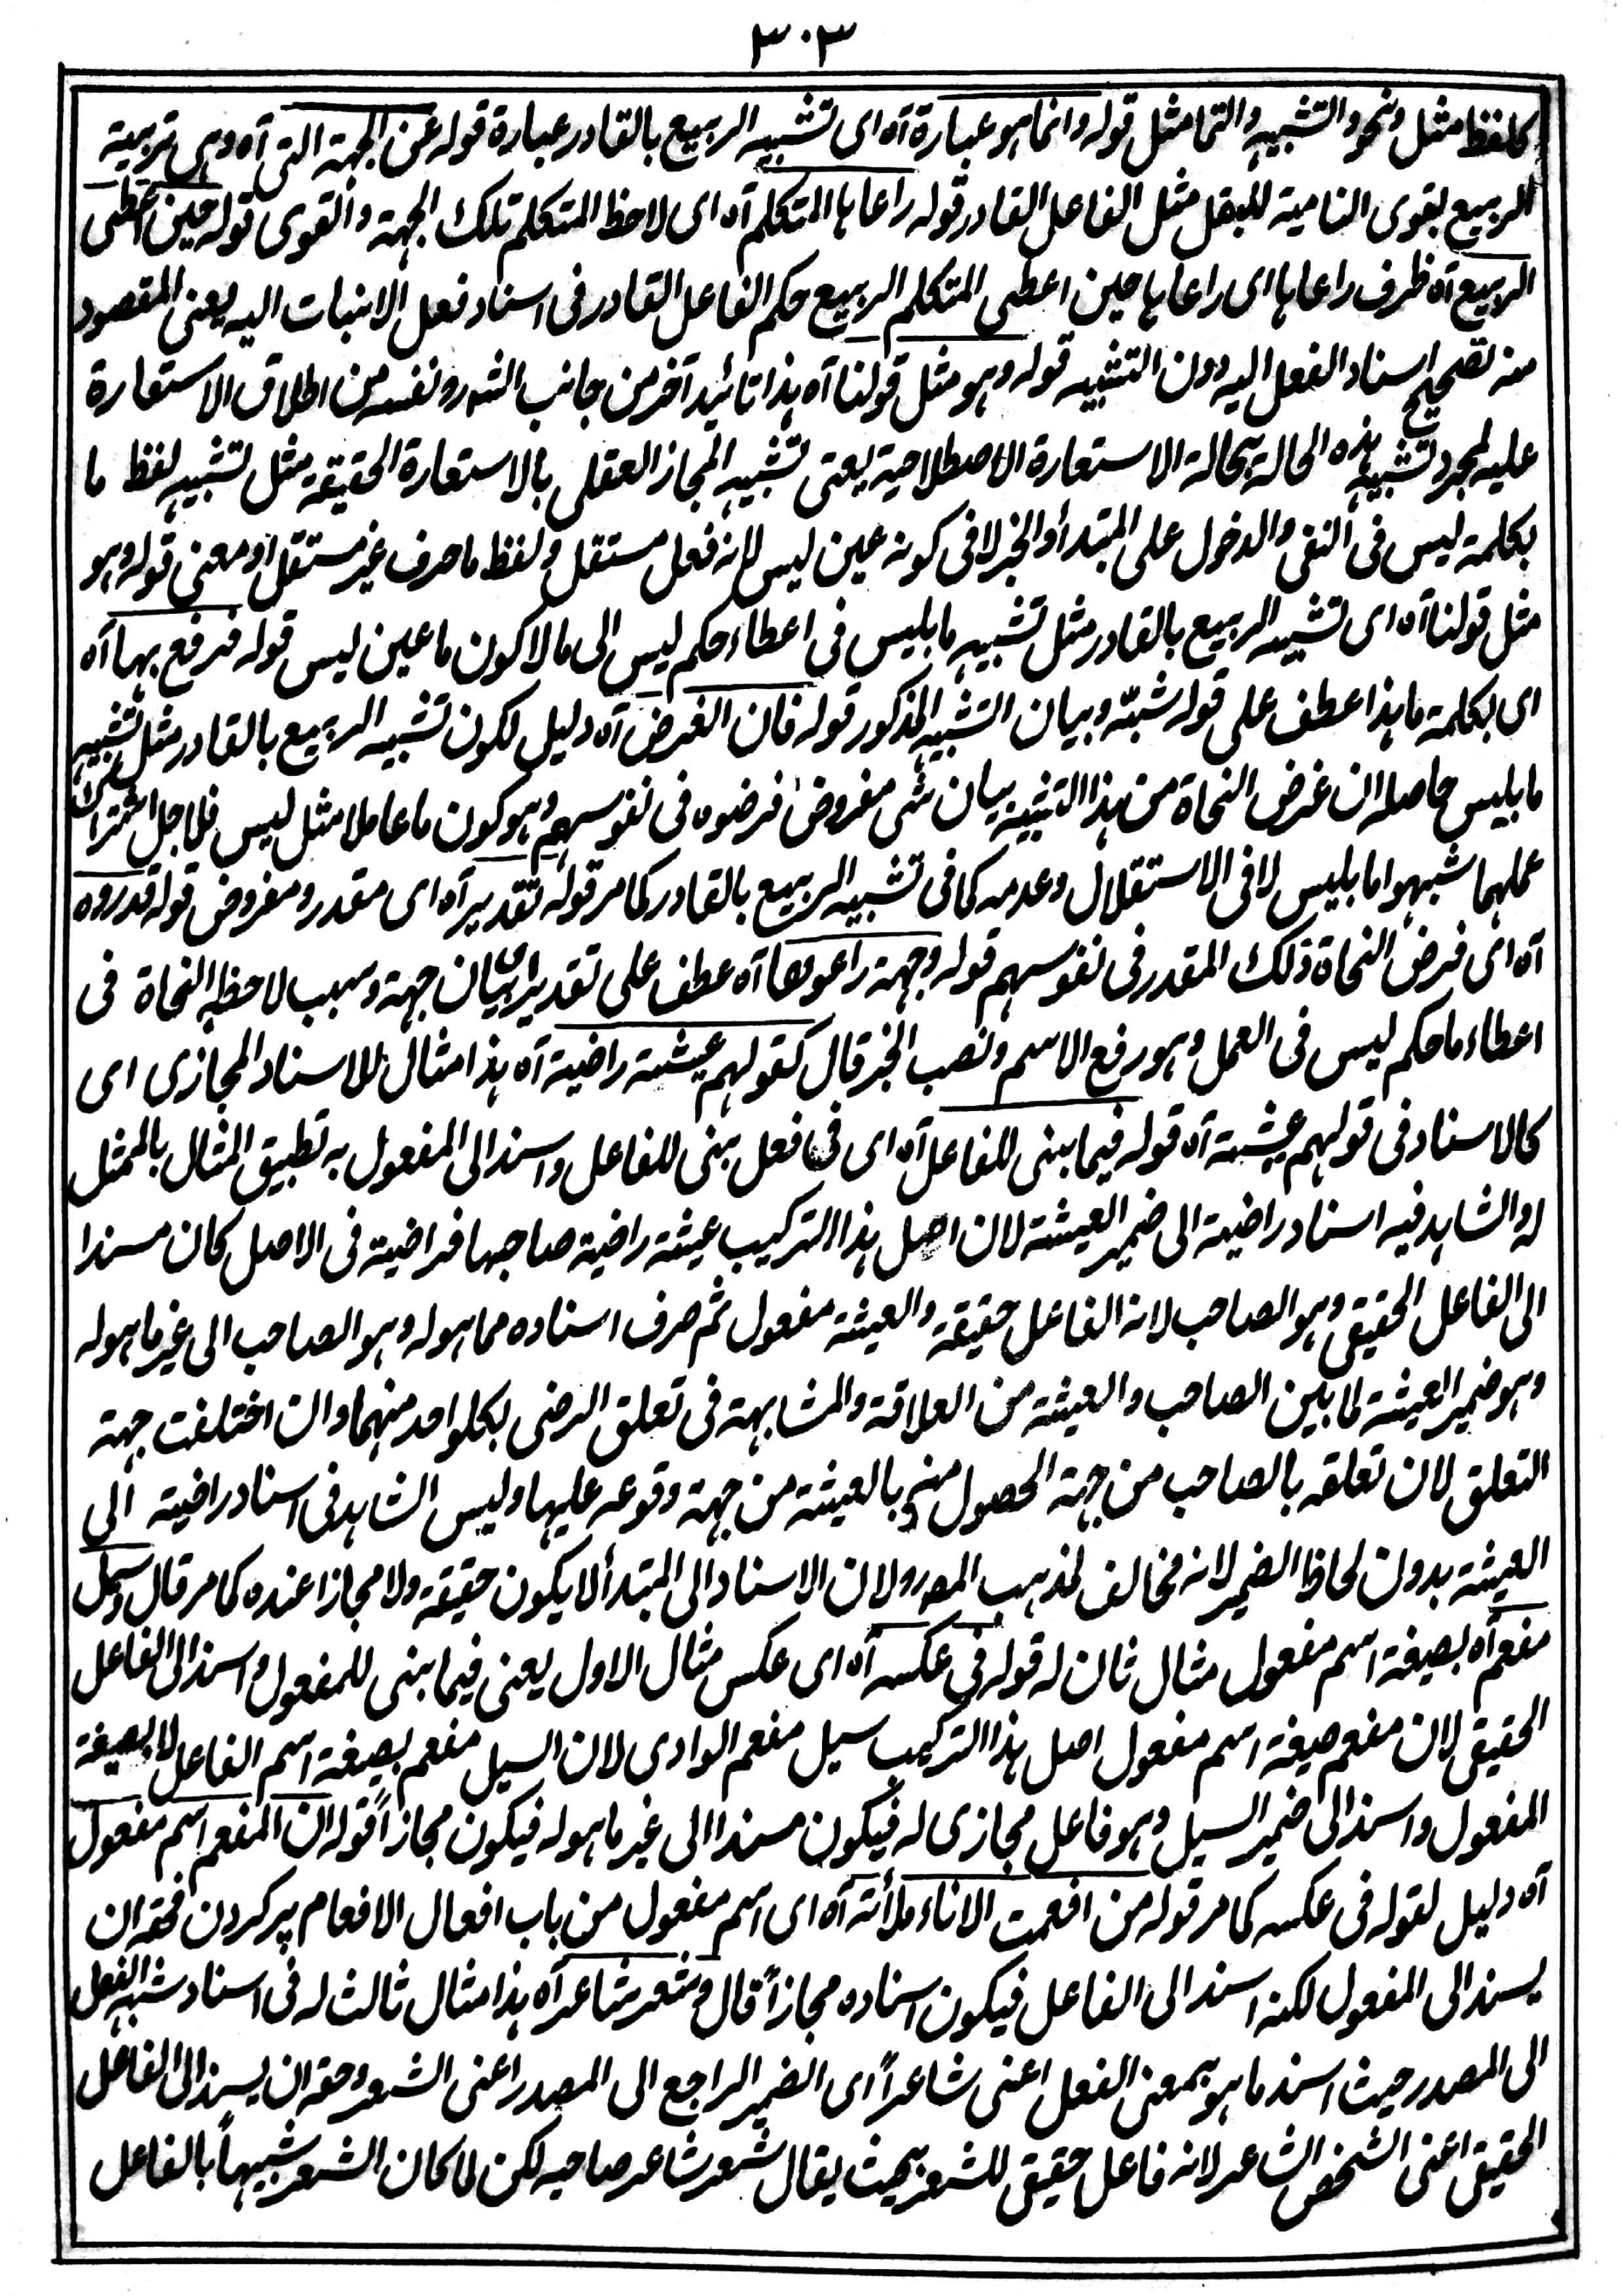 ٣٠٣
كلفظ مثل ونحو والتشبيه والتمامثل قوله وانما هو عبارة آه اى تشبيه الربيع بالقادر عبارة قوله عن الجهة التى آه وهى تربية
الربيع بقوى النامية للبقل مثل الفاعل القادر قوله راعاها المتكلم آه اى لاحظ المتكلم تلك الجهة والقوى قوله حين اعطى
الربيع آه ظرف راعاها اى راعاها حين اعطى المتكلم الربيع حكم الفاعل القادر فى اسناد فعل الانبات اليه يعنى المقصود
منه تصحيح اسناد الفعل اليه دون التشبيه قوله وهو مثل قولنا آه هذا تائيد آخر من جانب الشه رو نفسه من اطلاق الاستعارة
عليه لمجرد تشبيه هذه الحالة بحالة الاستعارة الاصطلاحية يعنى تشبيه المجاز العقلى بالاستعارة الحقيقة مثل تشبيه لفظ ما
بكلمة ليس فى النفى والدخول على المبتدأ والخبر لا فى كونه عين ليس لانه فعل مستقل ولفظ ما حرف غير مستقل او معنى قوله وهو
مثل قولنا آه اى تشبيه الربيع بالقادر مثل تشبيه ما بليس فى اعطاء حكم ليس الى ما لا كون ما عين ليس قوله فرفع بها آه
اى بكلمة ما هذا عطف على قوله شبّه وبيان التشبيه المذكور قوله فان الغرض آه دليل لكون تشبيه الربيع بالقادر مثل تشبيه
ما بليس حاصله ان غرض النحاة من هذا التشبيه بيان شى مفروض فرضوه فى نفوسهم وهو كون ما عاملا مثل ليس فلاجل اشتراك
عملهما شبهوا ما بليس لا فى الاستقلال وعدمه كما فى تشبيه الربيع بالقادر كما مر قوله تقدير آه اى مقدر ومفروض قوله قدروه
آه اى فرض النحاة ذلك المقدر فى نفوسهم قوله وجهة راعوها آه عطف على تقدير اى بيان جهة وسبب لاحظه النحاة فى
اعطاء ما حكم ليس فى العمل وهو رفع الاسم ونصب الخبر قال كقولهم عيشة راضية آه هذا مثال للاسناد المجازى اى
كالاسناد فى قولهم عيشة آه قوله فيما بنى للفاعل آه اى فى فعل بنى للفاعل واسند الى المفعول به تطبيق المثال بالممثل
له والشاهد فيه اسناد راضية الى ضمير العيشة لان اصل هذا التركيب عيشة راضية صاحبها فراضية فى الاصل كان مسندا
الى الفاعل الحقيقى وهو الصاحب لانه الفاعل حقيقة والعيشة مفعول ثم صرف اسناده مما هو له وهو الصاحب الى غير ما هو له
وهو ضمير العيشة لما بين الصاحب والعيشة من العلاقة والمشابهة فى تعلق الرضى بكلواحد منهما وان اختلفت جهة
التعلق لان تعلقه بالصاحب من جهة الحصول منه وبالعيشة من جهة وقوعه عليها وليس الشاهد فى اسناد راضية الى
العيشة بدون لحاظ الضمير لانه مخالف لمذهب المصرو لان الاسناد الى المبتدأ لا يكون حقيقة ولا مجازا عنده كما مر قال وسيل
مفعم آه بصيغة اسم مفعول مثال ثان له قوله فى عكسه آه اى عكس مثال الاول يعنى فيما بنى للمفعول واسند الى الفاعل
الحقيقى لان مفعم صيغة اسم مفعول اصل هذا التركيب سيل مفعم الوادى لان السيل مفعم بصيغة اسم الفاعل لا بصيغة
المفعول واسند الى ضمير السيل وهو فاعل مجازى له فيكون مسندا الى غير ما هو له فيكون مجازاً قوله ان المفعم اسم مفعول
آه دليل لقوله فى عكسه كما مر قوله من افعمت الاناء ملأته آه اى اسم مفعول من باب افعال الافعام پر كردن فحقه ان
يسند الى المفعول لكنه اسند الى الفاعل فيكون اسناده مجازاً قال وشعر شاعر آه هذا مثال ثالث له فى اسناد شبه الفعل
الى المصدر حيث اسند ما هو بمعنى الفعل اعنى شاعراً اى الضمير الراجع الى المصدر اعنى الشعر وحقه ان يسند الى الفاعل
الحقيقى اعنى الشخص الشاعر لانه فاعل حقيقى للشعر بحيث يقال شعر شاعر صاحبه لكن لما كان الشعر شبيهاً بالفاعل